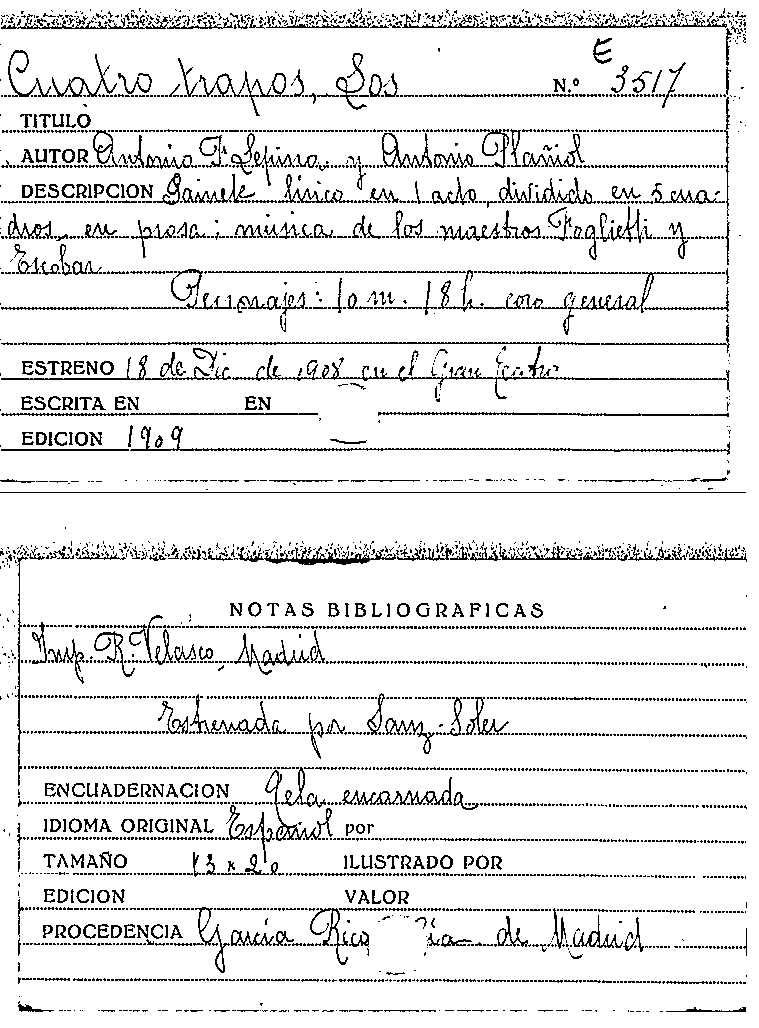 Cuatro trapos, Los N.º E 3517
TITULO
AUTOR Antonio F. Lepina y Antonio Plañiol
DESCRIPCION Sainete lírico en 1 acto, dividido en 5 cua-
dros, en prosa; música de los maestros Foglietti y
Escobar
Personajes: 10 m. 18 h. coro general
ESTRENO 18 de Dic. de 1908 en el Gran Teatro
ESCRITA EN EN
EDICION 1909
NOTAS BIBLIOGRAFICAS
Imp. R. Velasco, Madrid
Estrenada por Sanz-Soler
ENCUADERNACION Tela encarnada
IDIOMA ORIGINAL Español por
TAMAÑO 13 x 20 ILUSTRADO POR
EDICION VALOR
PROCEDENCIA García Rico de Madrid